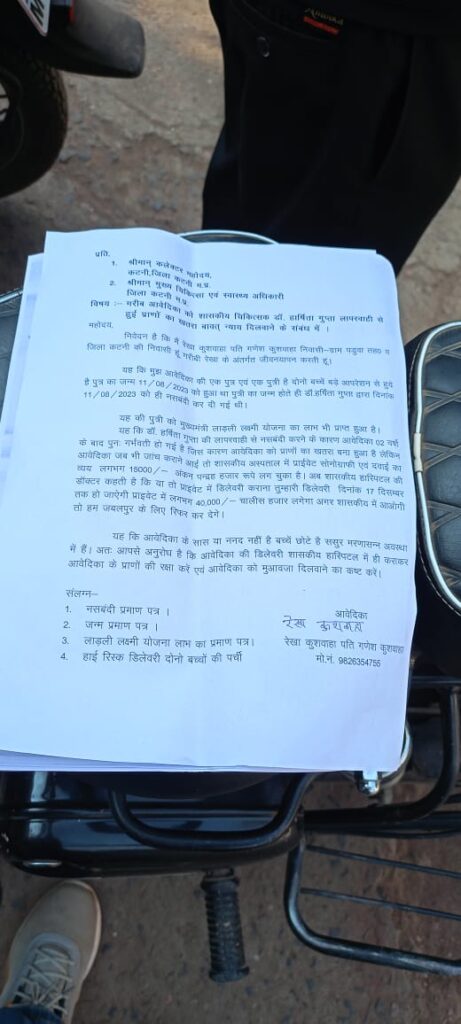 प्रति,
1. श्रीमान् कलेक्टर महोदय,
कटनी,जिला कटनी म.प्र.
2. श्रीमान् मुख्य चिकित्सा एवं स्वास्थ्य अधिकारी
जिला कटनी म.प्र.
विषय :- गरीब आवेदिका को शासकीय चिकित्सक डॉ. हार्षिता गुप्ता लापरवाही से
हुई प्राणों का खतरा बावत् न्याय दिलवाने के संबंध में ।
महोदय,
निवेदन है कि मैं रेखा कुशवाहा पति गणेश कुशवाहा निवासी-ग्राम पडुवा तह0 व
जिला कटनी की निवासी हूं गरीबी रेखा के अंतर्गत जीवनयापन करती हूं।
यह कि मुझ आवेदिका की एक पुत्र एवं एक पुत्री है दोनो बच्चे बड़े आपरेशन से हुये
है पुत्र का जन्म 11/08/2023 को हुआ था पुत्री का जन्म होते ही डॉ.हर्षिता गुप्ता द्वारा दिनांक
11/08/2023 को ही नसबंदी कर दी गई थी।
यह की पुत्री को मुख्यमंत्री लाड़ली लक्ष्मी योजना का लाभ भी प्राप्त हुआ है।
यह कि डॉ. हर्षिता गुप्ता की लापरवाही से नसबंदी करने के कारण आवेदिका 02 वर्ष
के बाद पुनः गर्भवती हो गई है जिस कारण आवेदिका को प्राणों का खतरा बना हुआ है लेकिन
आवेदिका जब भी जांच कराने आई तो शासकीय अस्पताल में प्राईवेट सोनोग्राफी एवं दवाई का
व्यय लगभग 15000/- अंकन पन्द्रह हजार रूपये लग चुका है। अब शासकीय हास्पिटल की
डॉक्टर कहती है कि या तो प्राइवेट में डिलेवरी कराना तुम्हारी डिलेवरी दिनांक 17 दिसम्बर
तक हो जाऐगी प्राइवेट में लगभग 40,000/- चालीस हजार लगेगा अगर शासकीय में आओगी
तो हम जबलपुर के लिए रिफर कर देगें।
यह कि आवेदिका के सास या ननद नहीं है बच्चें छोटे है ससुर मरणासन्न अवस्था
में हैं। अतः आपसे अनुरोध है कि आवेदिका की डिलेवरी शासकीय हास्पिटल में ही कराकर
आवेदिका के प्राणों की रक्षा करें एवं आवेदिका को मुआवजा दिलवाने का कष्ट करें।
संलग्न-
1. नसबंदी प्रमाण पत्र ।
2. जन्म प्रमाण पत्र ।
3. लाड़ली लक्ष्मी योजना लाभ का प्रमाण पत्र।
4. हाई रिस्क डिलेवरी दोनो बच्चों की पर्ची
आवेदिका
रेखा कुशवाहा
रेखा कुशवाहा पति गणेश कुशवाहा
मो.नं. 9826354755